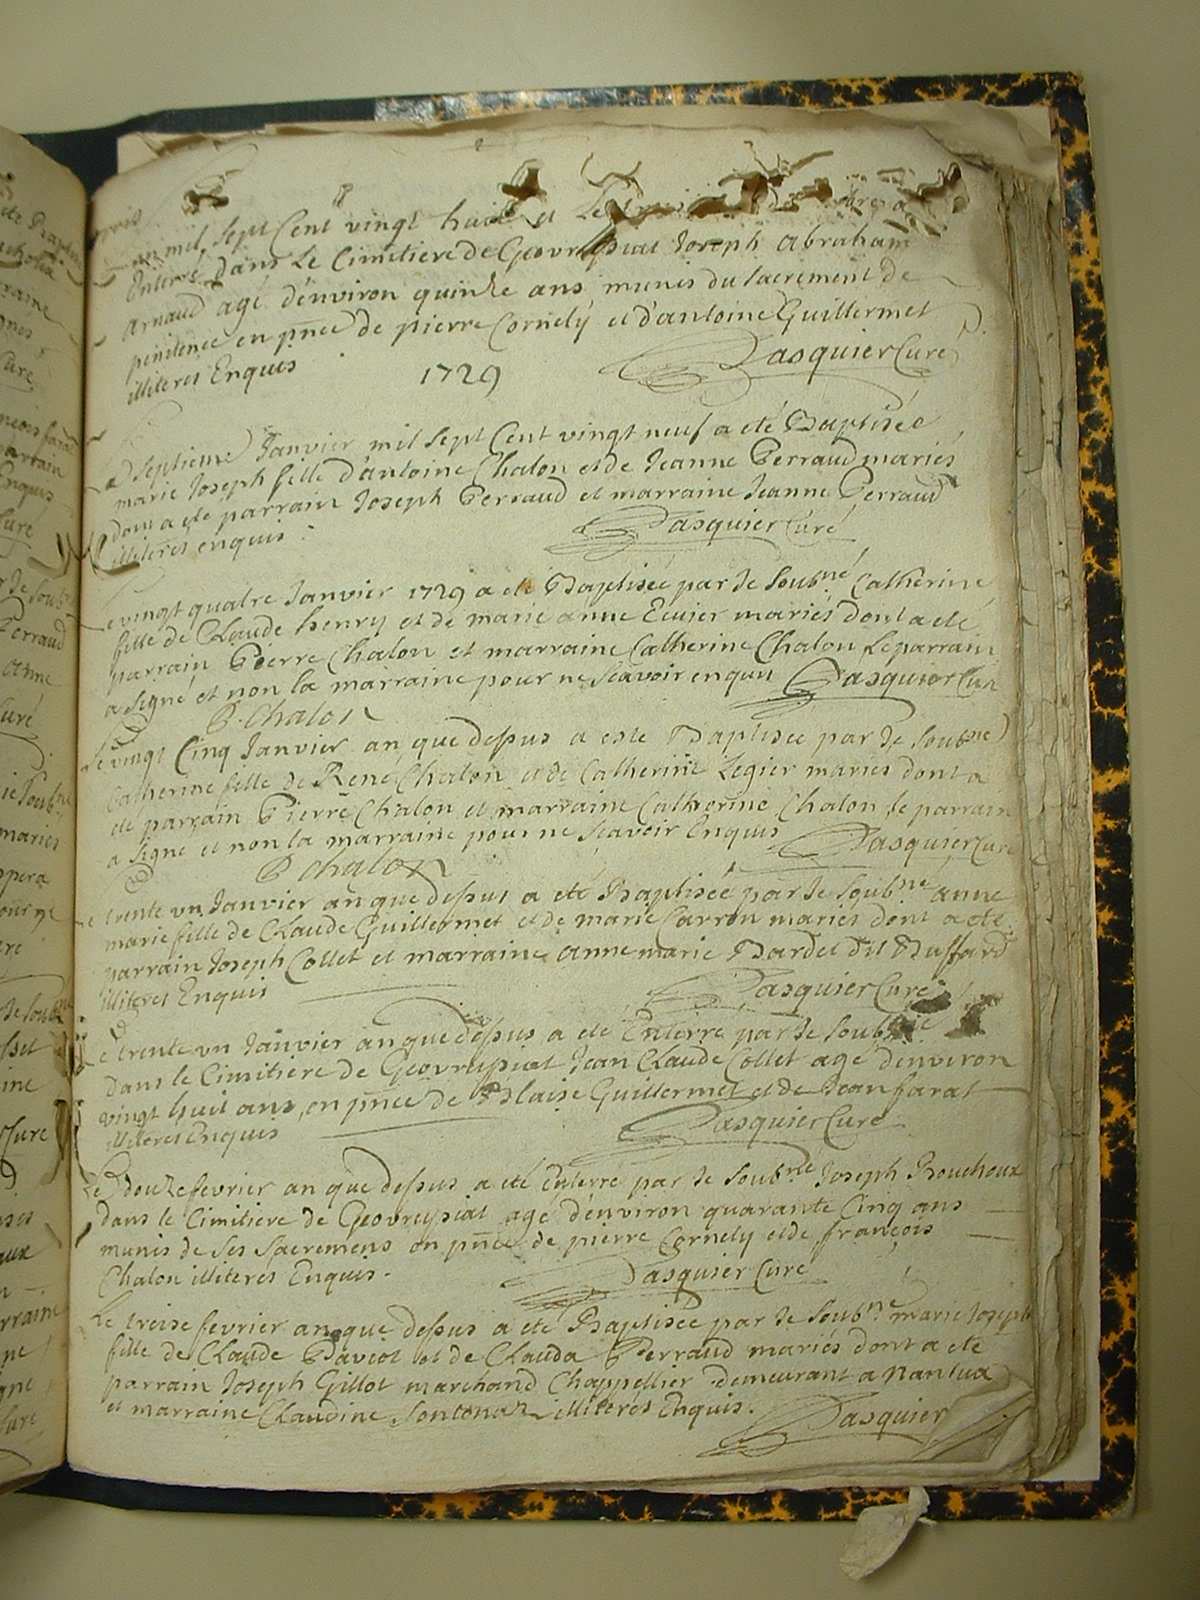 mil sept Cent vingt huit et Le trois
Enterré dans Le Cimetiere de Geovreyssiat Joseph abraham
arnaud agé d'environ quinze ans munis du sacrement de
penitence en pñce de pierre Cornely et d'antoine Guillermet
illiterés Enquis Pasquier Curé
1729
Le septieme Janvier mil sept Cent vingt neuf a eté Baptisée
marie Joseph fille d'antoine Chalon et de Jeanne Perraud mariés
dont a ete parrain Joseph Perraud et marraine Jeanne Perraud
illiterés enquis Pasquier Curé
Le vingt quatre Janvier 1729 a eté Baptisée par Je Soubné Catherine
fille de Claude henry et de marie anne Ecuier mariés dont a eté
parrain Pierre Chalon et marraine Catherine Chalon Le parrain
a signé et non la marraine pour ne scavoir enquis Pasquier Curé
P. Chalon
Le vingt Cinq Janvier an que dessus a esté Baptisée par Je Soubné
Catherine fille de René Chalon et de Catherine Legier mariés dont a
eté parrain Pierre Chalon et marraine Catherine Chalon Le parrain
a signé et non la marraine pour ne sçavoir Enquis Pasquier Curé
P chalon
Le trente un Janvier an que dessus a eté Baptisée par Je Soubné anne
marie fille de Claude Guillermet et de marie Carron mariés dont a eté
parrain Joseph Collet et marraine anne marie Bardet dit Buffard
illiterés Enquis Pasquier Curé
Le trente un Janvier an que dessus a eté Enterré par Je Soubné
dans le Cimitiere de Geovreyssiat Jean Claude Collet agé d'environ
vingt huit ans, en pñce de Blaise Guillermet et de Jean farat
illiterés Enquis Pasquier Curé
Le douze fevrier an que dessus a eté Enterré par Je Soubné Joseph Bouchoux
dans le Cimitiere de Geovreyssiat agé d'environ quarante Cinq ans
munis de ses sacremens en pñce de pierre Cornely et de françois
Chalon illiterés Enquis. Pasquier Curé
Le treise fevrier an que dessus a eté Baptisée par Je Soubné marie Joseph
fille de Claude Baviot et de Clauda Perraud mariés dont a eté
parrain Joseph Gillot marchand Chappellier demeurant a nantua
et marraine Claudine Sontonaz illiterés Enquis. Pasquier